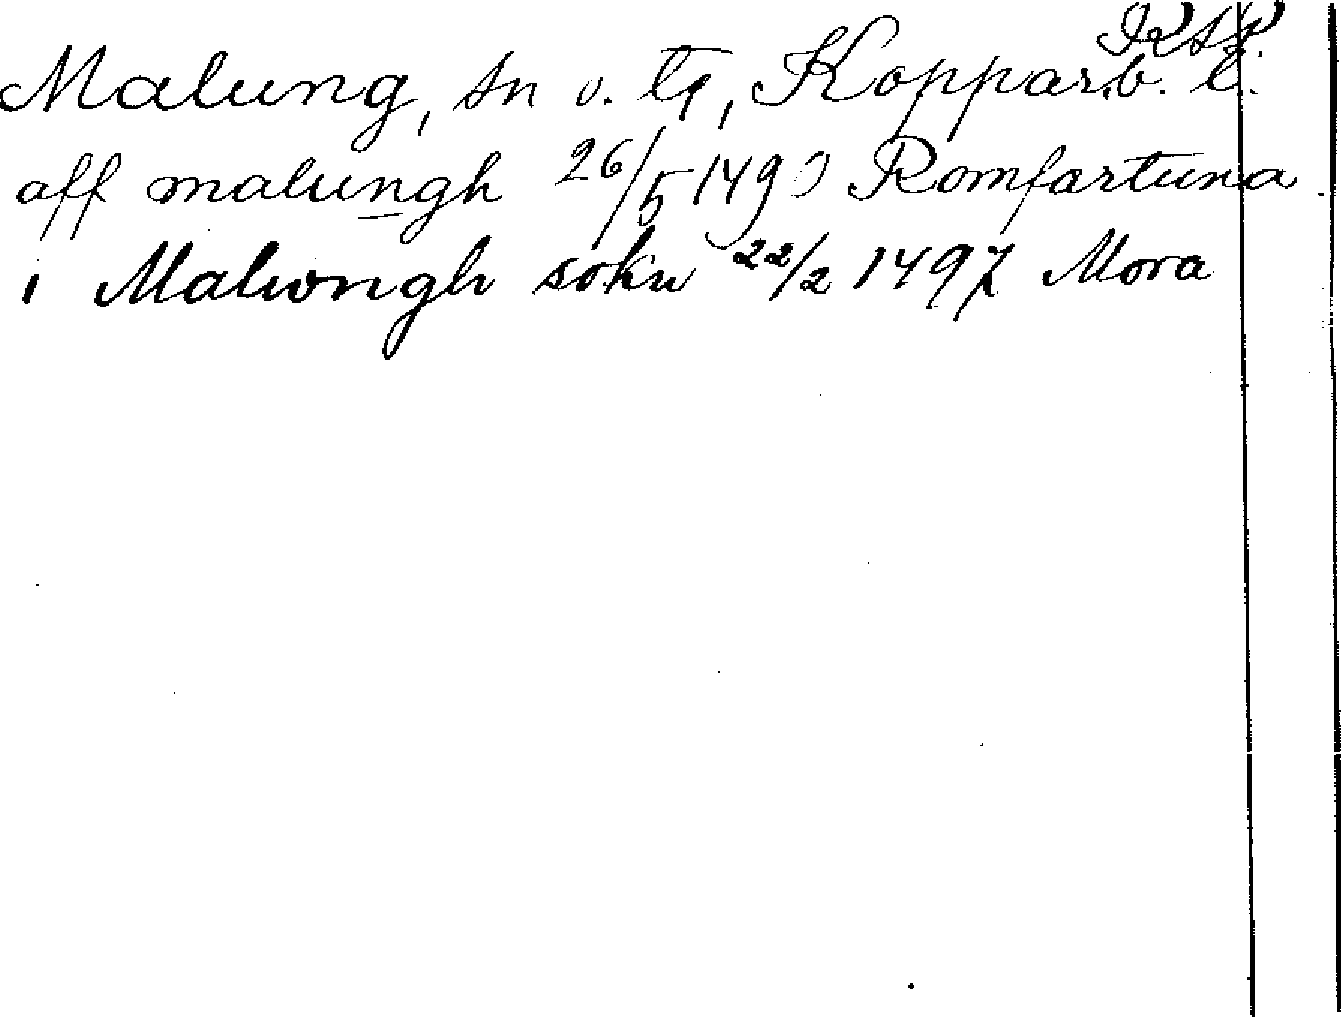 Malung, sn o. tg, Kopparb. l.
aff malungh 26/5 1493 Romfartuna
i Malwngh sokn 22/2 1497 Mora